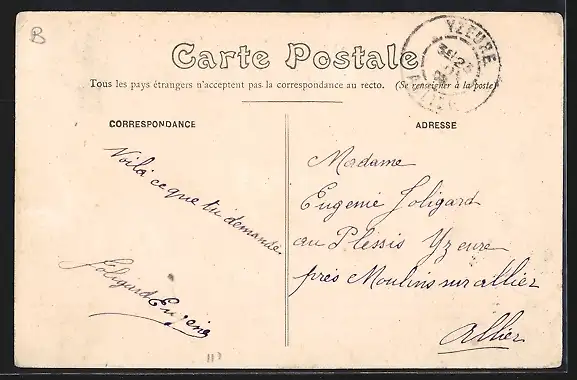 B
Carte Postale
Tous les pays étrangers n'acceptent pas la correspondance au recto. (Se renseigner à la poste)
YZEURE
ALLIER
CORRESPONDANCE
Voilà ce que tu demande.
Joligard Eugénie
ADRESSE
Madame
Eugenie Joligard
au Plessis Yzeure
près Moulins sur allier
Allier